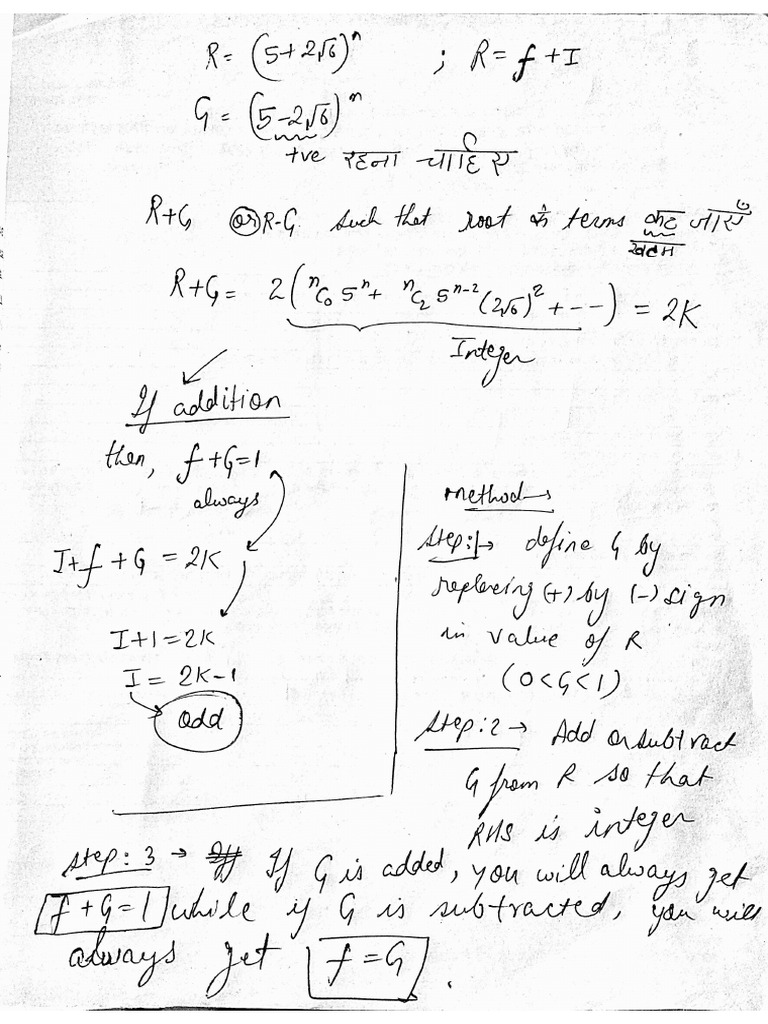 R = (5+2√6)ⁿ ; R = f + I
G = (5-2√6)ⁿ
+ve रहना चाहिए
R+G or R-G such that root के terms कट जाएँ
खतम
R+G = 2(ⁿC₀ 5ⁿ + ⁿC₂ 5ⁿ⁻² (2√6)² + ---) = 2K
Integer
If addition
then, f+G=1
always
I+f+G = 2K
I+1 = 2K
I = 2K-1
odd
method→
Step:1→ define G by
replacing (+) by (-) sign
in value of R
(0<G<1)
Step:2→ Add or subtract
G from R so that
RHS is integer
Step:3 → If G is added, you will always get
f+G=1 while if G is subtracted, you will
always get f=G.